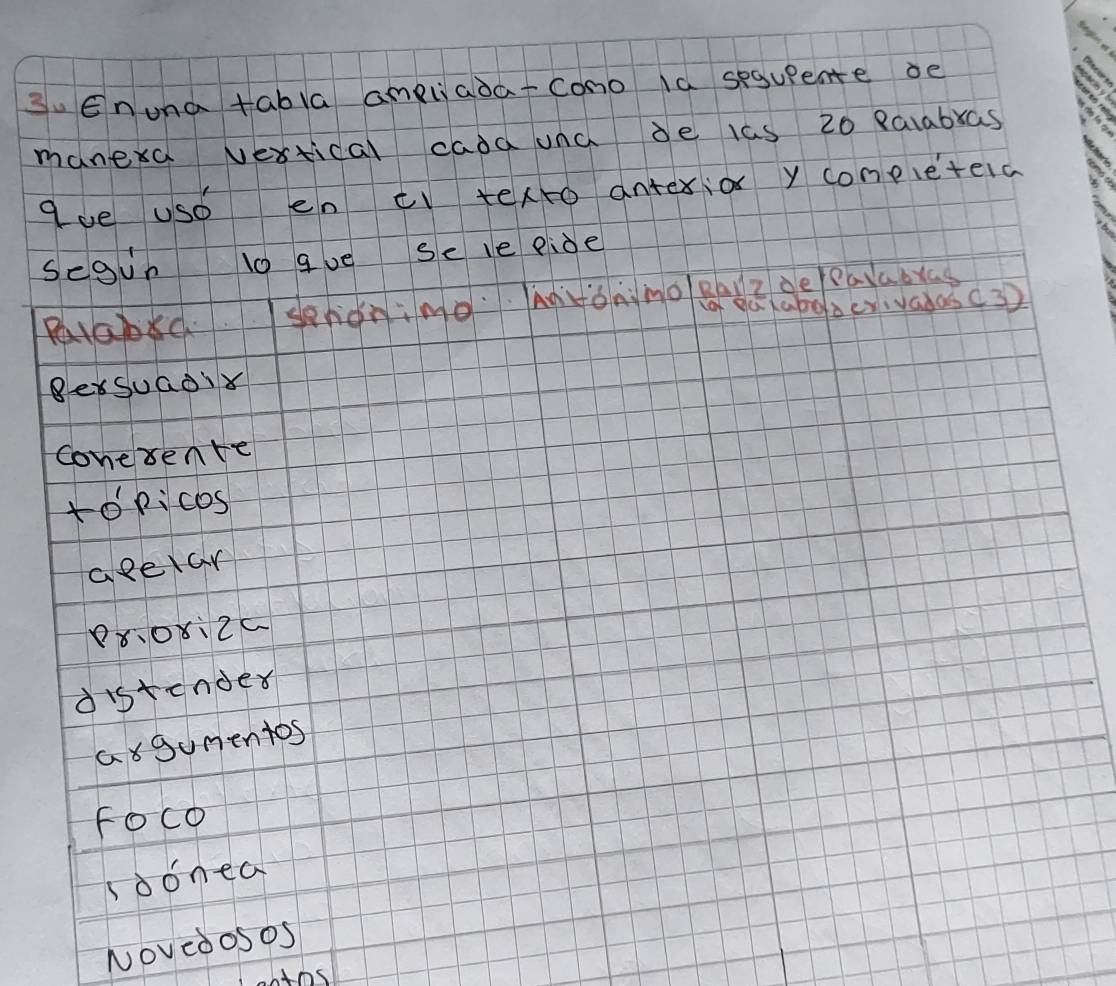 3. En una tabla ampliada - Como la segupente de
manera vertical cada una de las 20 Palabras
que usó en el texto anterior y complétela
según lo que se le pide
Palabra senónimo Antónimo Raiz de la palabra Palabras derivadas (3)
Persuadir
Coherente
tópicos
apelar
Prioriza
distender
argumentos
Foco
idónea
Novedosos